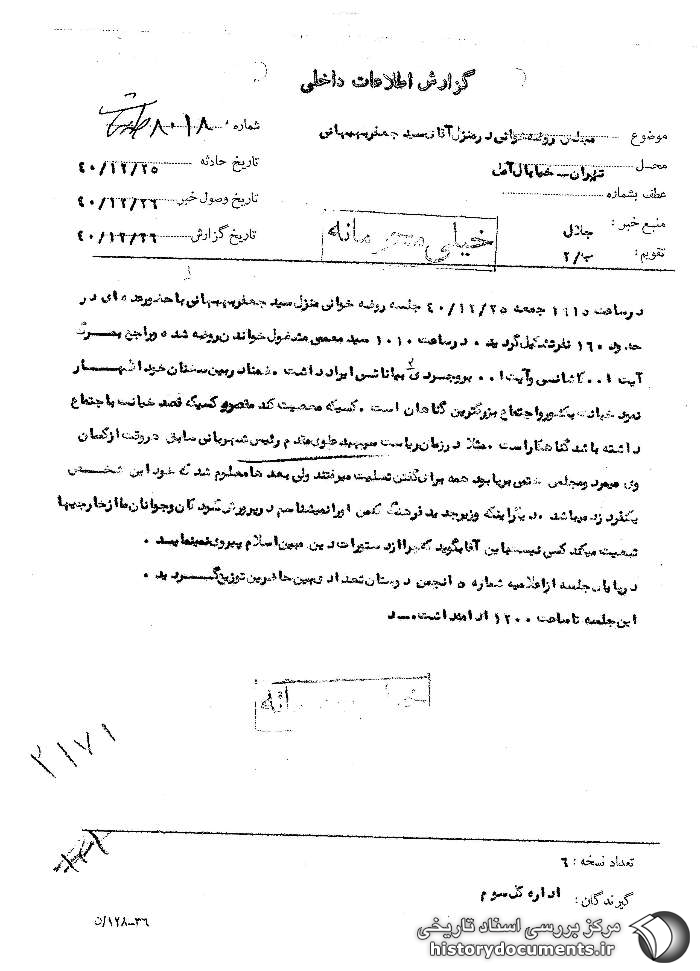 گزارش اطلاعات داخلی
موضوع مجلس روضه‌خوانی در منزل آقای سید جعفر بهبهانی
شماره ۸۰۱۸
محل تهران ـ خیابان آمل
تاریخ حادثه ۴۰/۱۲/۲۵
عطف بشماره
تاریخ وصول خبر ۴۰/۱۲/۲۶
منبع خبر: جلال
تاریخ گزارش ۴۰/۱۲/۲۶
تقویم: ب/۲
خیلی محرمانه
در ساعت ۰۹۱۵ جمعه ۴۰/۱۲/۲۵ جلسه روضه خوانی منزل سید جعفر بهبهانی با حضور عده ای در
حدود ۱۶۰ نفر تشکیل گردید ۰ در ساعت ۱۰۱۰ سید معصومی مشغول خواندن روضه شده و راجع بمرگ
آیت ا۰۰ کاشانی و آیت ا۰۰ بروجردی بیاناتی ایراد داشت ۰ ضمنا در بین سخنان خود اظهار
نمود خیانت بکشور و اجتماع بزرگترین گناهان است ۰ کسیکه معصیت کند مقصر و کسیکه قصد خیانت باجتماع
داشته باشد گناهکار است ۰ مثلا در زمان ریاست سپهبد علوی مقدم رئیس شهربانی سابق در وقت از کسان
وی میمرد و مجلس ختمی برپا بود همه برای گفتن تسلیت میرفتند ولی بعدها معلوم شد که خود این شخص
یکفرد دزد میباشد ۰ دیگر اینکه وزیر جدید فرهنگ که من او را نمیشناسم در پرورش کودکان و جوانان ما از خارجیها
تبعیت میکند کسی نیست باین آقا بگوید که چرا از دستورات دین مبین اسلام پیروی نمینماید ۰
در پایان جلسه از اعلامیه شماره ۵ انجمن در ستان تعدادی بین حاضرین توزیع گردید ۰
این جلسه تا ساعت ۱۲۰۰ ادامه داشت ـ د
خیلی محرمانه
۲۱۷۱
تعداد نسخه: ۶
گیرندگان: اداره کل سوم
۳۶-۱۲۸/ن
مرکز بررسی اسناد تاریخی
historydocuments.ir